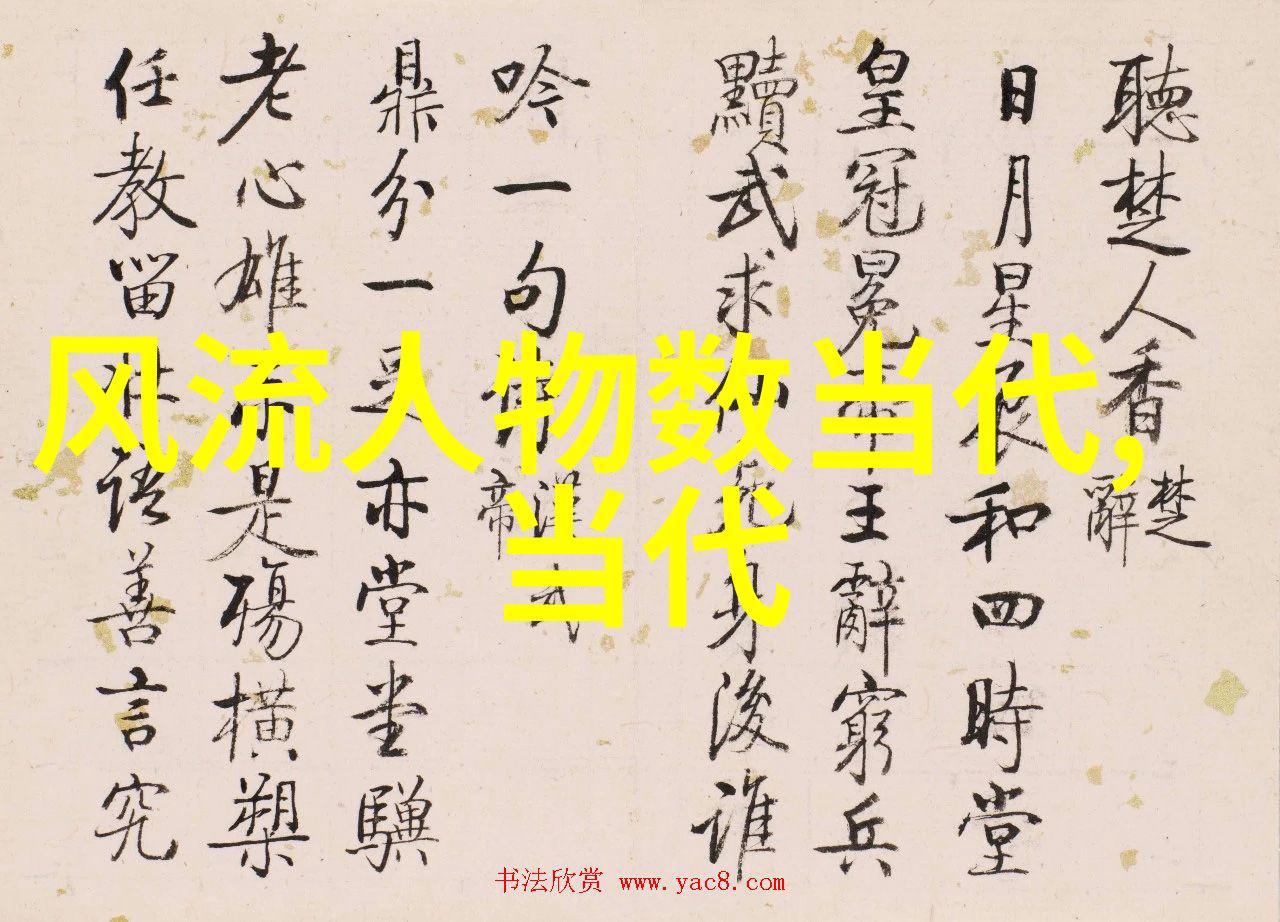 聽楚人香 楚辭
日月星辰和四時堂
皇冠冕王辭窮兵
黷武求身後誰
吟一句 漢武帝
鼎分一亦堂堂驥
老心雄是殤橫槊
任教留語善言究
风流人物数当代,
当代
书法欣赏 www.yac8.com